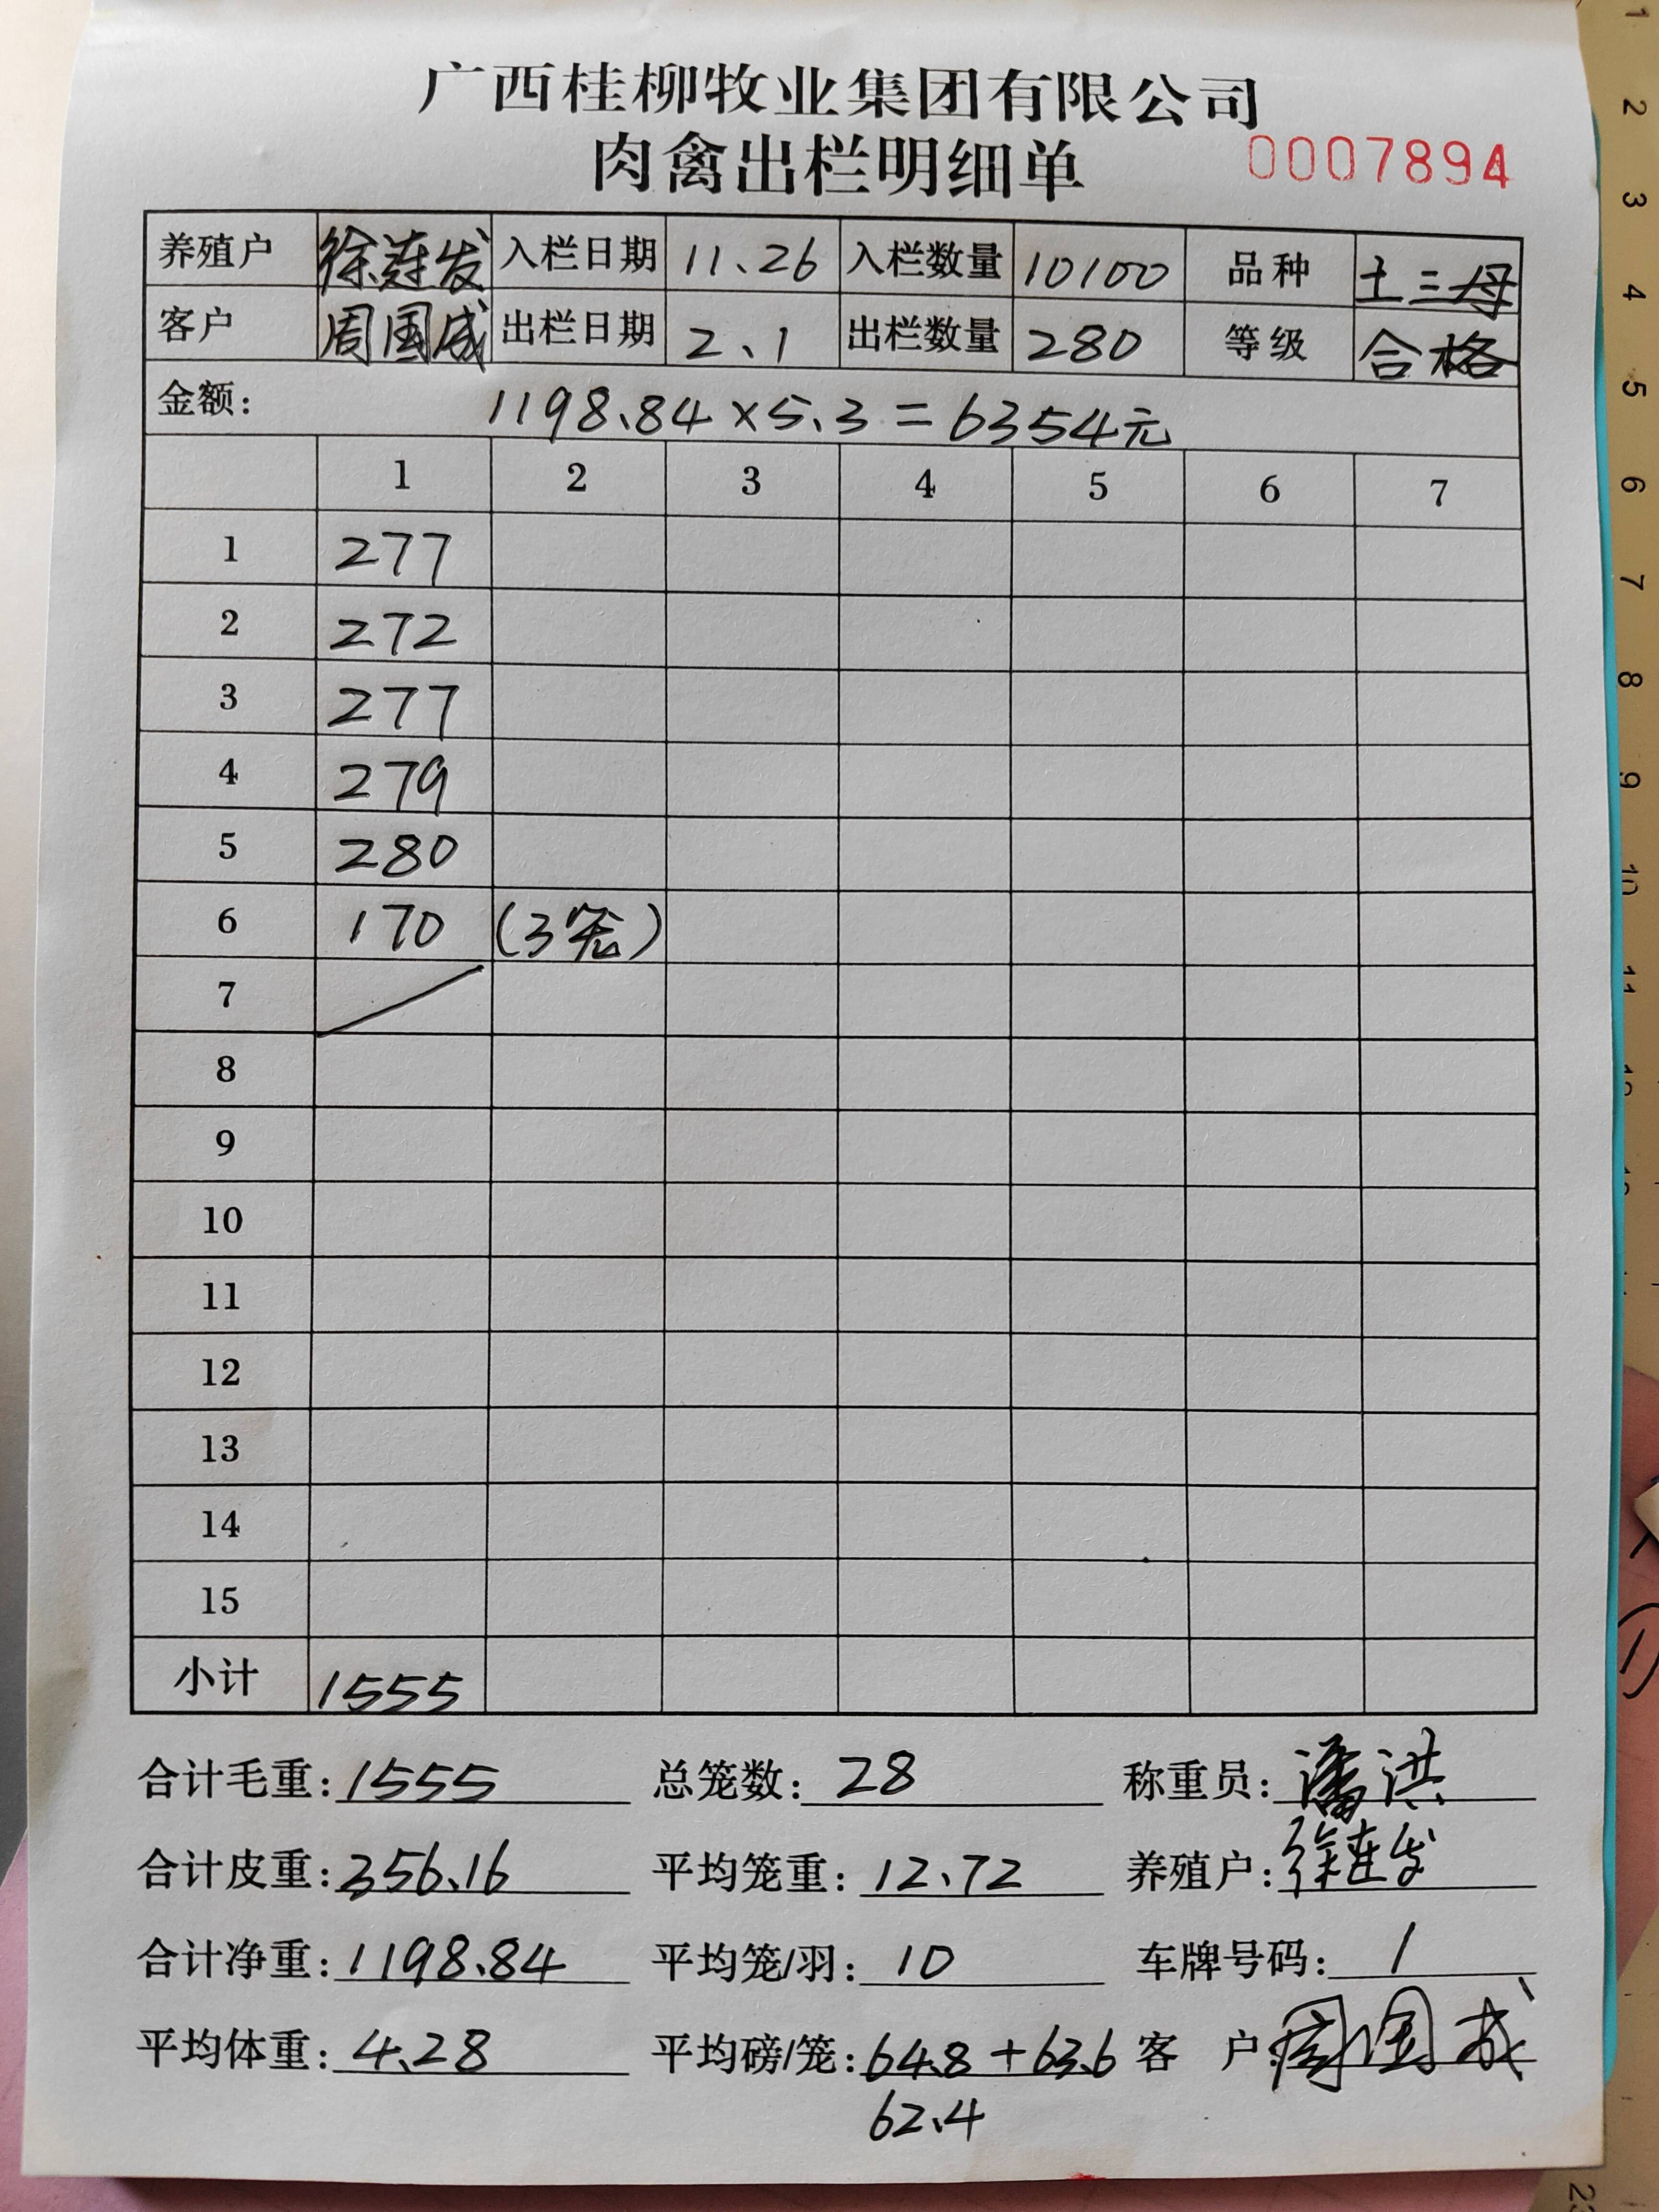 广西桂柳牧业集团有限公司
肉禽出栏明细单 0007894
养殖户 徐连发 入栏日期 11.26 入栏数量 10100 品种 土三母
客户 周国成 出栏日期 2.1 出栏数量 280 等级 合格
金额: 1198.84×5.3=6354元
1 2 3 4 5 6 7
1 277
2 272
3 277
4 279
5 280
6 170 (3笼)
7
8
9
10
11
12
13
14
15
小计 1555
合计毛重: 1555 总笼数: 28 称重员: 潘洪
合计皮重: 356.16 平均笼重: 12.72 养殖户: 徐连发
合计净重: 1198.84 平均笼/羽: 10 车牌号码: 1
平均体重: 4.28 平均磅/笼: 64.8+63.6 客 户: 周国成
62.4
1
2
3
4
5
6
7
8
9
10
11